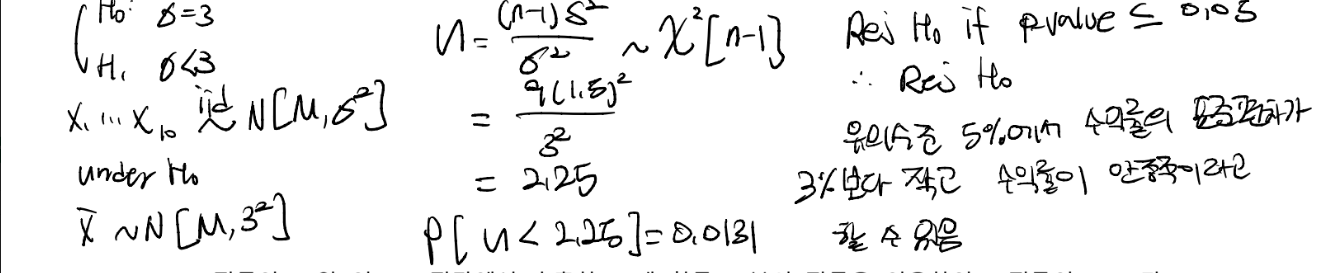 H₀: σ=3
H₁ σ<3
X₁ ... X₁₀ iid ~ N[M, σ²]
under H₀
X̄ ~ N[M, 3²]
U = (n-1)S² / σ² ~ χ²[n-1]
= 9(1.5)² / 3²
= 2.25
P[U < 2.25] = 0.0131
Rej H₀ if pvalue ≤ 0.05
∴ Rej H₀
유의수준 5%에서 수익률의 표준편차가
3%보다 작고 수익률이 안정적이라고
할 수 있음